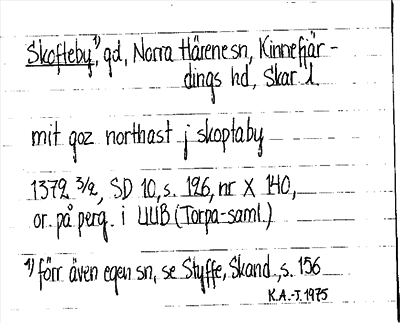 Skofteby,¹⁾ gd, Norra Härene sn, Kinnefjär-
dings hd, Skar. l.
mit goz northast j skoptaby
1372 3/2, SD 10, s. 126, nr X 140,
or. på perg. i UUB (Torpa-saml.)
¹⁾ förr även egen sn, se Styffe, Skand., s. 156
K.A.-J. 1975